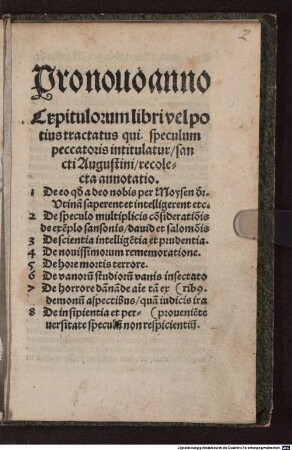 2
Pro nouo anno
Capitulorum libri vel po
tius tractatus qui. speculum
peccatoris intitulatur/san
cti Augustini/recole-
cta annotatio.
1 De eo qđ a deo nobis per Moysen dr̄.
Vtinā saperent et intelligerent etc.
2 De speculo multiplicis cōsideratiōis
de exēplo sansonis/dauid et salomōis
3 De scientia intelligētia et prudentia.
4 De nouissimorum rememoratione.
5 De hore mortis terrore.
6 De vanorū studiorū vanis insectato
7 De horrore dānāde aīe tā ex (rib9.
demonū aspectibus/quā iudicis ira
8 De insipientia et per- (proueniēte
uersitate speculū non respicientiū.